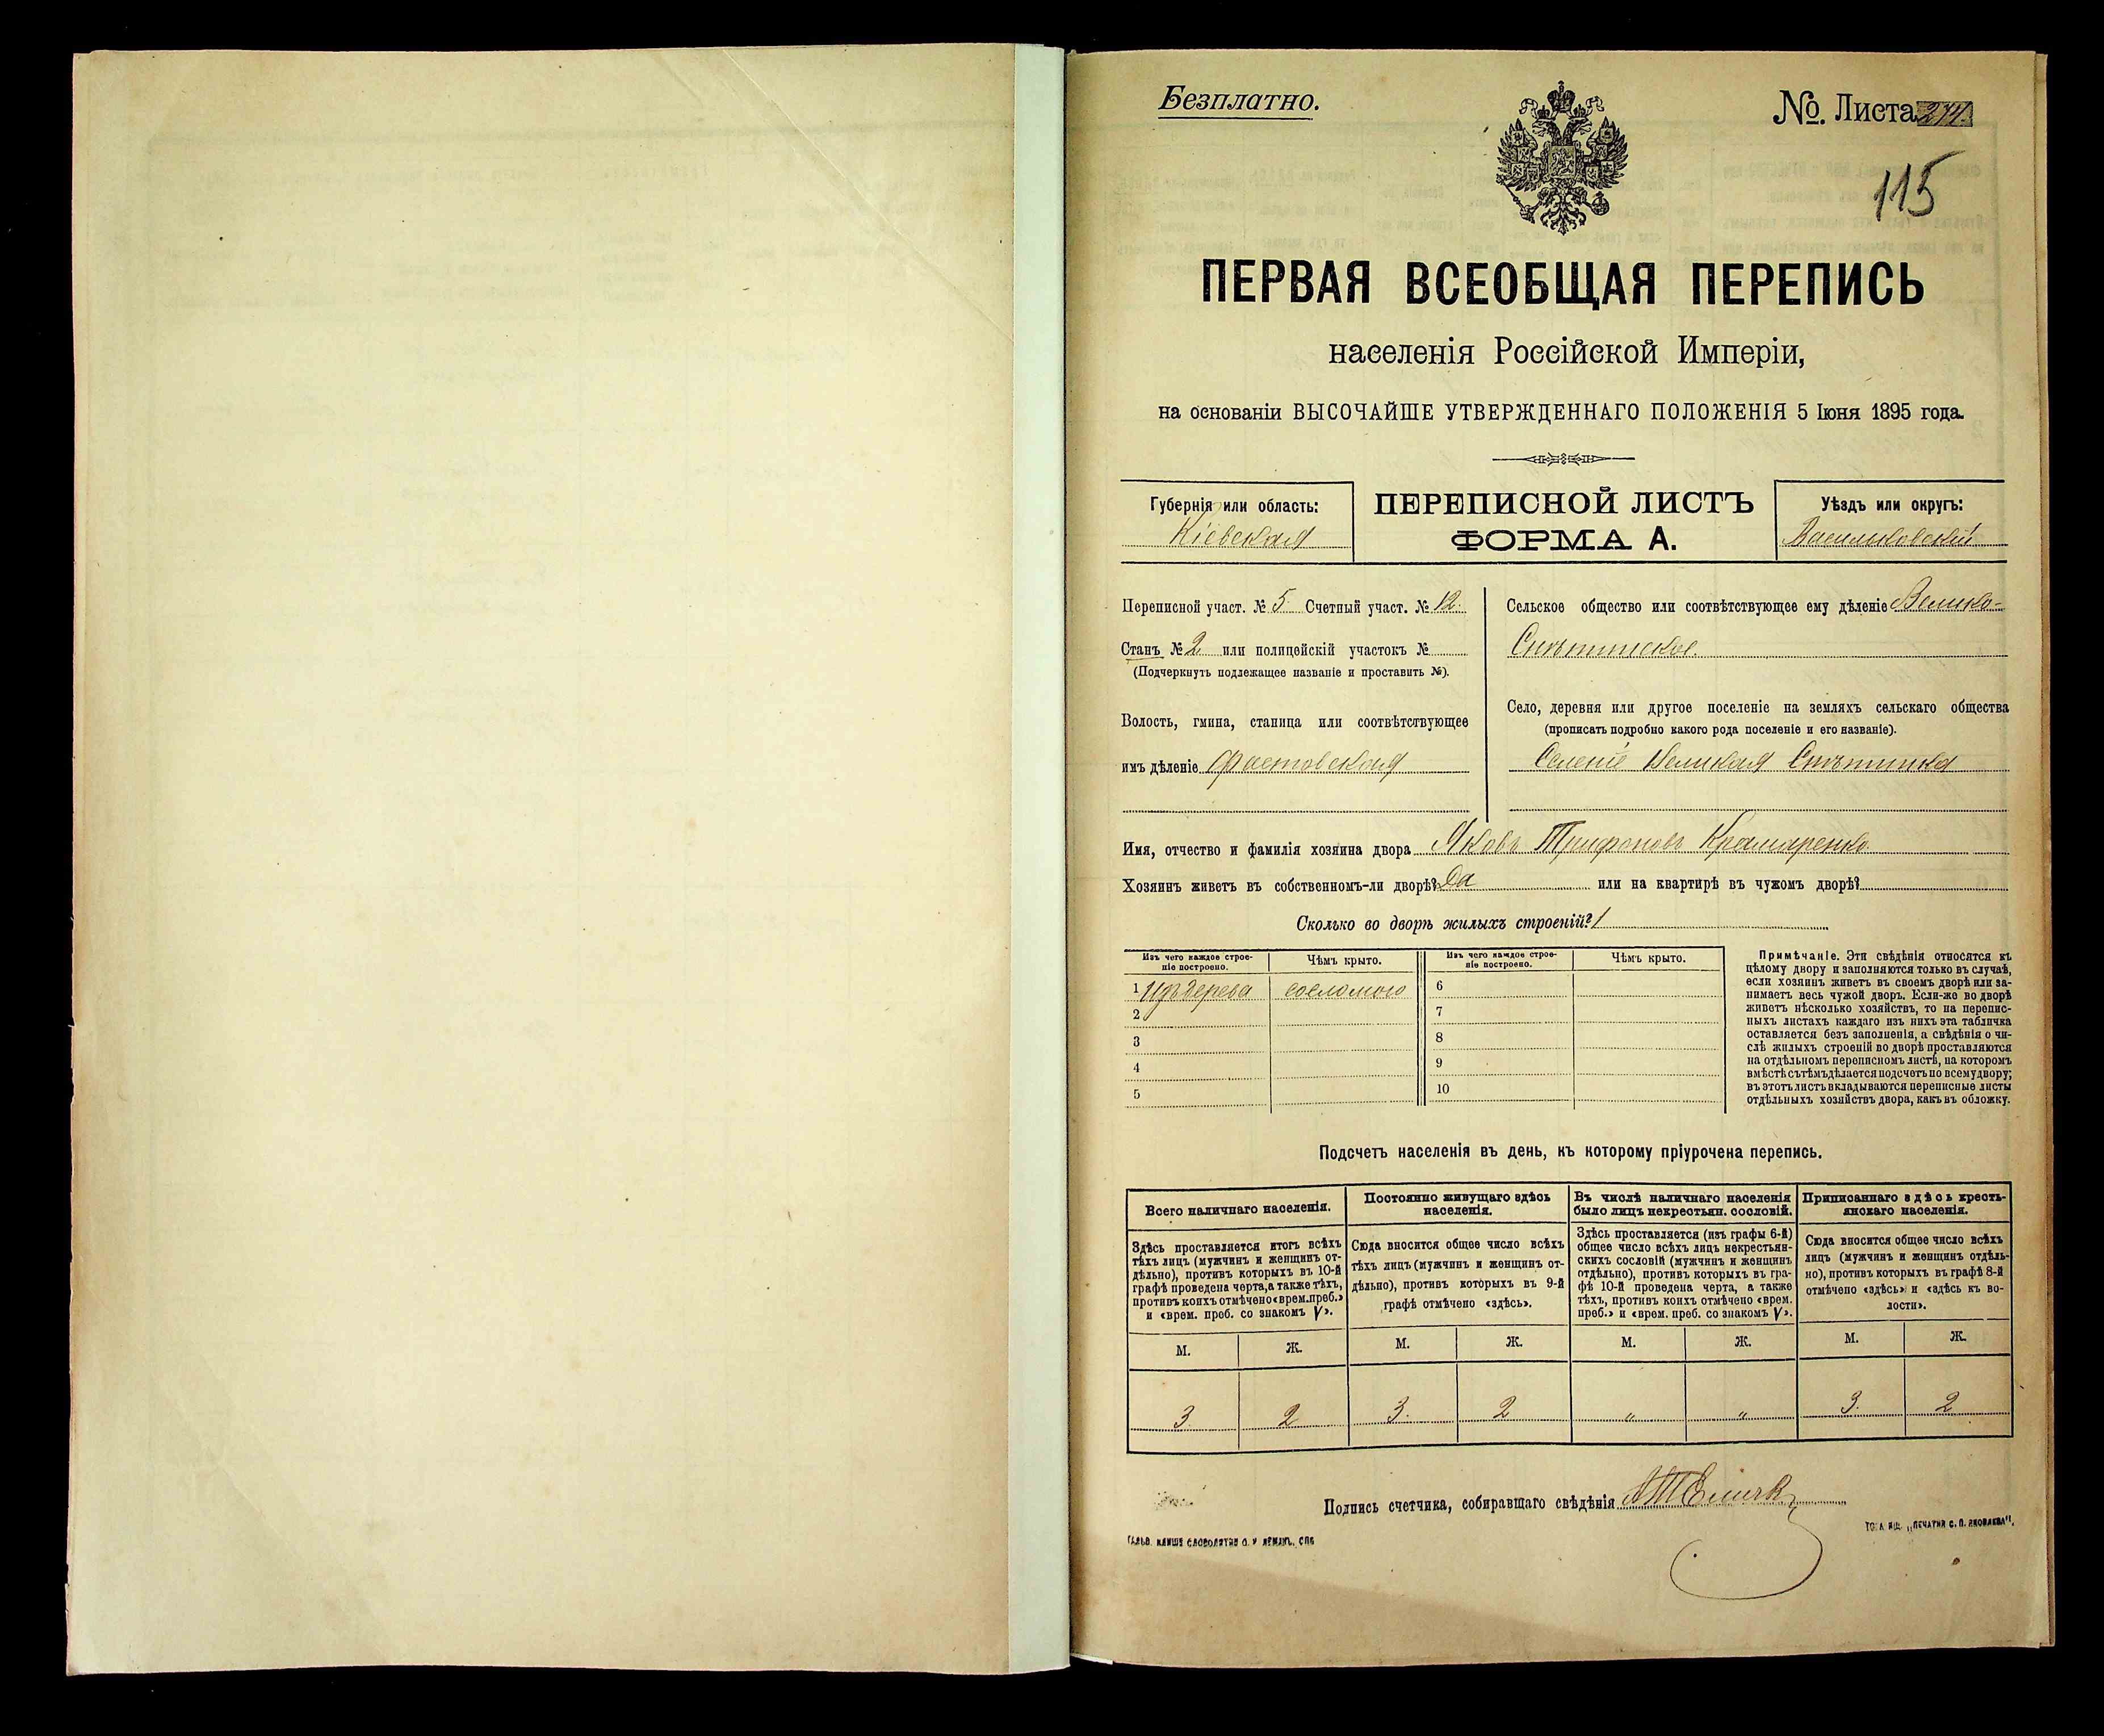 Безплатно.
№. Листа 274.
115
ПЕРВАЯ ВСЕОБЩАЯ ПЕРЕПИСЬ
населенія Россійской Имперіи,
на основаніи ВЫСОЧАЙШЕ УТВЕРЖДЕННАГО ПОЛОЖЕНІЯ 5 Іюня 1895 года.
Губернія или область:
Кіевская
ПЕРЕПИСНОЙ ЛИСТЪ
ФОРМА А.
Уѣздъ или округъ:
Васильковскій
Переписной участ. № 5. Счетный участ. № 12.
Станъ № 2 или полицейскій участокъ №
(Подчеркнуть подлежащее названіе и проставить №).
Волость, гмина, станица или соотвѣтствующее
имъ дѣленіе Фастовская
Сельское общество или соотвѣтствующее ему дѣленіе Велико-
Снѣтинское.
Село, деревня или другое поселеніе на земляхъ сельскаго общества
(прописать подробно какого рода поселеніе и его названіе).
Селеніе Великая Снѣтинка
Имя, отчество и фамилія хозяина двора Яковъ Трифоновъ Крамаренко
Хозяинъ живетъ въ собственномъ-ли дворѣ? Да или на квартирѣ въ чужомъ дворѣ?
Сколько во дворѣ жилыхъ строеній? 1
Изъ чего каждое строе-
ніе построено.
Чѣмъ крыто.
Изъ чего каждое строе-
ніе построено.
Чѣмъ крыто.
1 Изъ дерева соломою 6
2 7
3 8
4 9
5 10
Примѣчаніе. Эти свѣдѣнія относятся къ
цѣлому двору и заполняются только въ случаѣ,
если хозяинъ живетъ въ своемъ дворѣ или за-
нимаетъ весь чужой дворъ. Если-же во дворѣ
живетъ нѣсколько хозяйствъ, то на перепис-
ныхъ листахъ каждаго изъ нихъ эта табличка
оставляется безъ заполненія, а свѣдѣнія о чи-
слѣ жилыхъ строеній во дворѣ проставляются
на отдѣльномъ переписномъ листѣ, на которомъ
вмѣстѣ съ тѣмъ дѣлается подсчетъ по всему двору;
въ этотъ листъ вкладываются переписные листы
отдѣльныхъ хозяйствъ двора, какъ въ обложку.
Подсчетъ населенія въ день, къ которому пріурочена перепись.
Всего наличнаго населенія.
Здѣсь проставляется итогъ всѣхъ
тѣхъ лицъ (мужчинъ и женщинъ от-
дѣльно), противъ которыхъ въ 10-й
графѣ проведена черта, а также тѣхъ,
противъ коихъ отмѣчено «врем. преб.»
и «врем. преб. со знакомъ V».
Постоянно живущаго здѣсь
населенія.
Сюда вносится общее число всѣхъ
тѣхъ лицъ (мужчинъ и женщинъ от-
дѣльно), противъ которыхъ въ 9-й
графѣ отмѣчено «здѣсь».
Въ числѣ наличнаго населенія
было лицъ некрестьян. сословій.
Здѣсь проставляется (изъ графы 6-й)
общее число всѣхъ лицъ некрестьян-
скихъ сословій (мужчинъ и женщинъ
отдѣльно), противъ которыхъ въ гра-
фѣ 10-й проведена черта, а также
тѣхъ, противъ коихъ отмѣчено «врем.
преб.» и «врем. преб. со знакомъ V».
Приписаннаго здѣсь кресть-
янскаго населенія.
Сюда вносится общее число всѣхъ
лицъ (мужчинъ и женщинъ отдѣль-
но), противъ которыхъ въ графѣ 8-й
отмѣчено «здѣсь» и «здѣсь къ во-
лости».
М. Ж. М. Ж. М. Ж. М. Ж.
3 2 3. 2 „ „ 3. 2
Подпись счетчика, собиравщаго свѣдѣнія